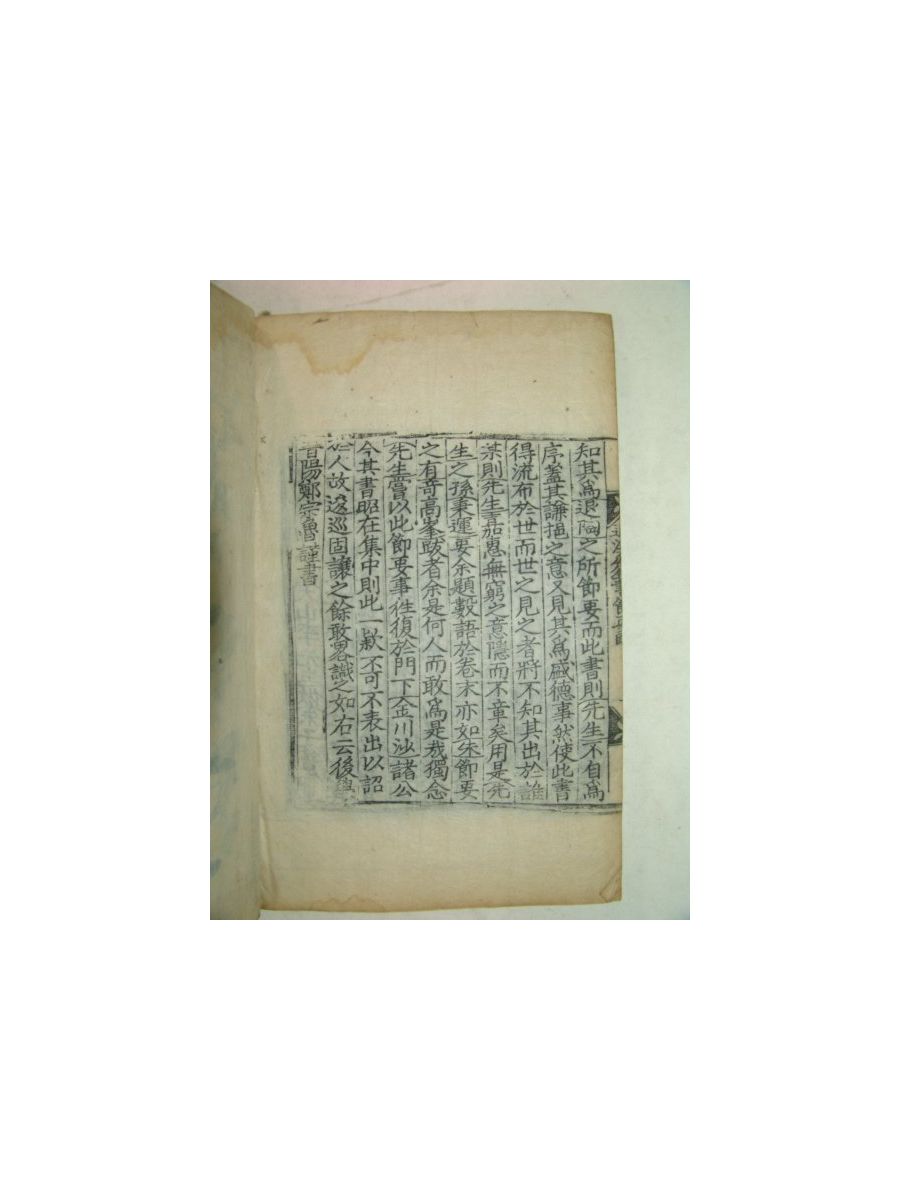 知其爲退陶之所節要而此書則先生不自爲
序蓋其謙挹之意又見其爲盛德事然使此書
得流布於世而世之見之者將不知其出於誰
某則先生嘉惠無窮之意隱而不章矣用是先
生之孫秉運要余題數語於卷末亦如朱節要
之有奇高峯跋者余是何人而敢爲是哉獨念
先生嘗以此節要事徃復於門下金川沙諸公
今其書昭在集中則此一款不可不表出以詔
於人故逡巡固讓之餘敢畧識之如右云後學
晉陽鄭宗魯謹書